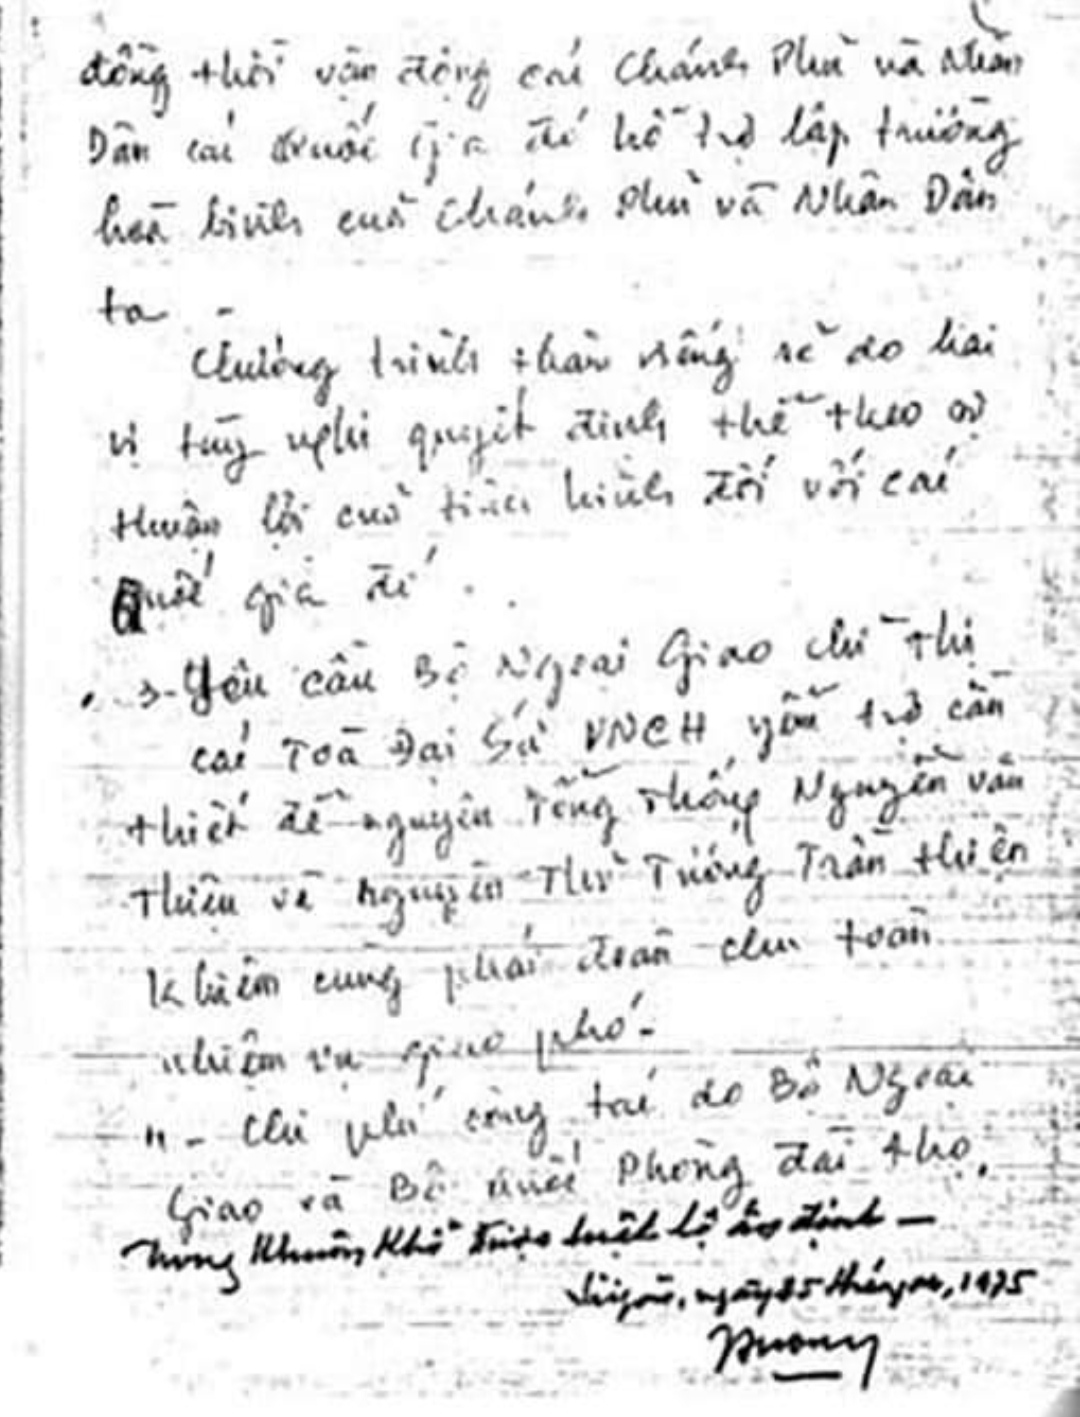 đồng thời vận động các Chánh Phủ và Nhân
Dân các Quốc Gia đó hỗ trợ lập trường
hoà bình của Chánh Phủ và Nhân Dân
ta -
Chương trình thăm viếng sẽ do hai
vị tùy nghi quyết định thể theo sự
thuận lợi của tình hình đối với các
quốc gia đó.
3- Yêu cầu Bộ Ngoại Giao chỉ thị
các Toà Đại Sứ VNCH yểm trợ cần
thiết để nguyên Tổng Thống Nguyễn văn
Thiệu và nguyên Thủ Tướng Trần thiện
Khiêm cùng phái đoàn chu toàn
nhiệm vụ giao phó -
4- Chi phí công tác do Bộ Ngoại
Giao và Bộ Quốc Phòng đài thọ,
trong khuôn khổ được luật lệ ấn định —
Saigon, ngày 25 tháng 04, 1975
Hương